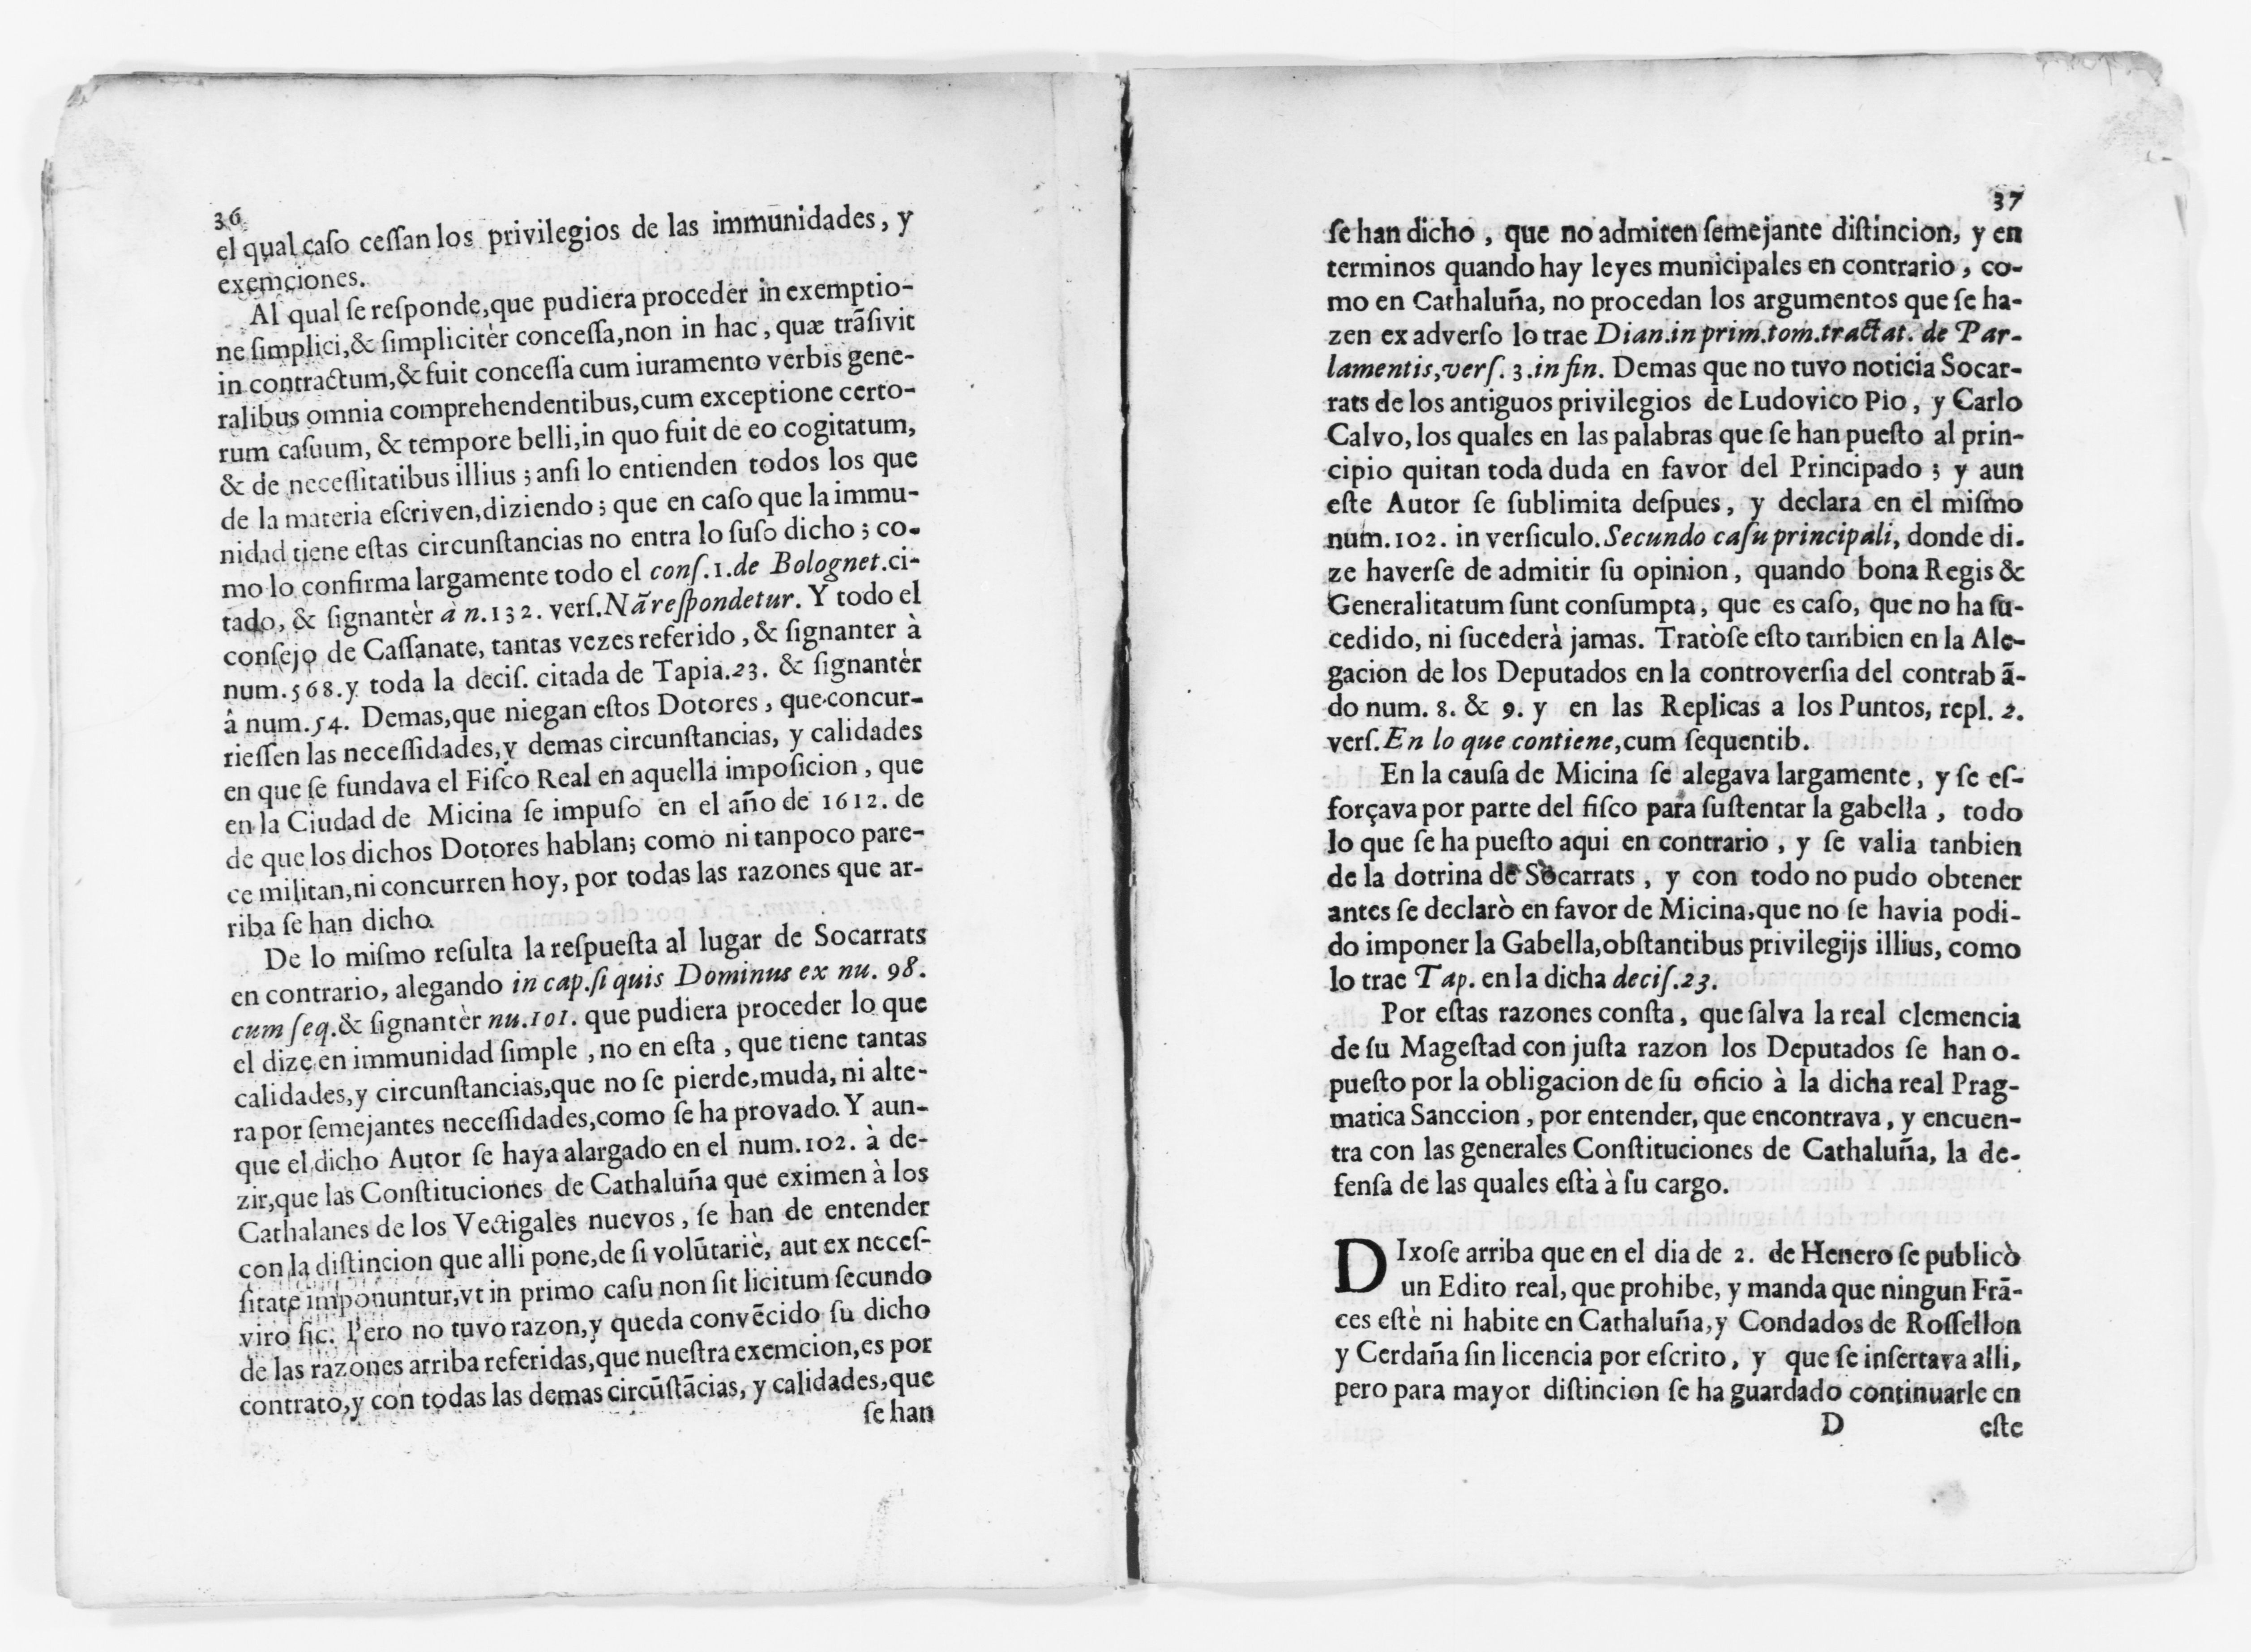 36
el qual caſo ceſſan los privilegios de las immunidades, y
exemciones.
Al qual ſe reſponde, que pudiera proceder in exemptio-
ne ſimplici, & ſimplicitèr conceſſa, non in hac, quæ trãſivit
in contractum, & fuit conceſſa cum iuramento verbis gene-
ralibus omnia comprehendentibus, cum exceptione certo-
rum caſuum, & tempore belli, in quo fuit de eo cogitatum,
& de neceſſitatibus illius; anſi lo entienden todos los que
de la materia eſcriven, diziendo; que en caſo que la immu-
nidad tiene eſtas circunſtancias no entra lo ſuſo dicho; co-
mo lo confirma largamente todo el conſ. 1. de Bolognet. ci-
tado, & ſignantèr à n. 132. verſ. Nã reſpondetur. Y todo el
conſejo de Caſſanate, tantas vezes referido, & ſignanter à
num. 568. y toda la deciſ. citada de Tapia. 23. & ſignantèr
â num. 54. Demas, que niegan eſtos Dotores, que concur-
rieſſen las neceſſidades, y demas circunſtancias, y calidades
en que ſe fundava el Fiſco Real en aquella impoſicion, que
en la Ciudad de Micina ſe impuſo en el año de 1612. de
de que los dichos Dotores hablan; como ni tanpoco pare-
ce militan, ni concurren hoy, por todas las razones que ar-
riba ſe han dicho.
De lo miſmo reſulta la reſpueſta al lugar de Socarrats
en contrario, alegando in cap. ſi quis Dominus ex nu. 98.
cum ſeq. & ſignantèr nu. 101. que pudiera proceder lo que
el dize en immunidad ſimple, no en eſta, que tiene tantas
calidades, y circunſtancias, que no ſe pierde, muda, ni alte-
ra por ſemejantes neceſſidades, como ſe ha provado. Y aun-
que el dicho Autor ſe haya alargado en el num. 102. à de-
zir, que las Conſtituciones de Cathaluña que eximen à los
Cathalanes de los Vectigales nuevos, ſe han de entender
con la diſtincion que alli pone, de ſi volũtariè, aut ex neceſ-
ſitate imponuntur, vt in primo caſu non ſit licitum ſecundo
viro ſic. Pero no tuvo razon, y queda convẽcido ſu dicho
de las razones arriba referidas, que nueſtra exemcion, es por
contrato, y con todas las demas circũſtãcias, y calidades, que
ſe han
37
ſe han dicho, que no admiten ſemejante diſtincion, y en
terminos quando hay leyes municipales en contrario, co-
mo en Cathaluña, no procedan los argumentos que ſe ha-
zen ex adverſo lo trae Dian. in prim. tom. tractat. de Par-
lamentis, verſ. 3. in fin. Demas que no tuvo noticia Socar-
rats de los antiguos privilegios de Ludovico Pio, y Carlo
Calvo, los quales en las palabras que ſe han pueſto al prin-
cipio quitan toda duda en favor del Principado; y aun
eſte Autor ſe ſublimita deſpues, y declara en el miſmo
num. 102. in verſiculo. Secundo caſu principali, donde di-
ze haverſe de admitir ſu opinion, quando bona Regis &
Generalitatum ſunt conſumpta, que es caſo, que no ha ſu-
cedido, ni ſucederà jamas. Tratòſe eſto tambien en la Ale-
gacion de los Deputados en la controverſia del contrabã-
do num. 8. & 9. y en las Replicas a los Puntos, repl. 2.
verſ. En lo que contiene, cum ſequentib.
En la cauſa de Micina ſe alegava largamente, y ſe eſ-
forçava por parte del fiſco para ſuſtentar la gabella, todo
lo que ſe ha pueſto aqui en contrario, y ſe valia tanbien
de la dotrina de Socarrats, y con todo no pudo obtener
antes ſe declarò en favor de Micina, que no ſe havia podi-
do imponer la Gabella, obſtantibus privilegijs illius, como
lo trae Tap. en la dicha deciſ. 23.
Por eſtas razones conſta, que ſalva la real clemencia
de ſu Mageſtad con juſta razon los Deputados ſe han o-
pueſto por la obligacion de ſu oficio à la dicha real Prag-
matica Sanccion, por entender, que encontrava, y encuen-
tra con las generales Conſtituciones de Cathaluña, la de-
fenſa de las quales eſtà à ſu cargo.
DIxoſe arriba que en el dia de 2. de Henero ſe publicò
un Edito real, que prohibe, y manda que ningun Frã-
ces eſtè ni habite en Cathaluña, y Condados de Roſſellon
y Cerdaña ſin licencia por eſcrito, y que ſe inſertava alli,
pero para mayor diſtincion ſe ha guardado continuarle en
D
eſte